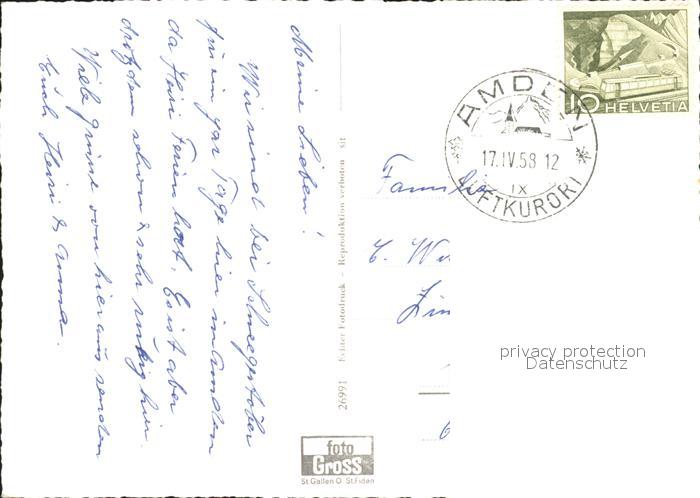 Meine Lieben!
Wir sind bei Schneegestöber
für ein par Tage hier in Amden
da Heiri Ferien hat. Es ist aber
drotzdem schön & sehr ruhig hier.
Viele Grüsse von hier aus senden
Euch Heiri &
26991 Echter Fotodruck - Reproduktion verboten sit
foto
Gross
St. Gallen O St. Fiden
10 HELVETIA
AMDEN
17.IV.58 12
IX
LUFTKURORT
Familie
privacy protection
Datenschutz